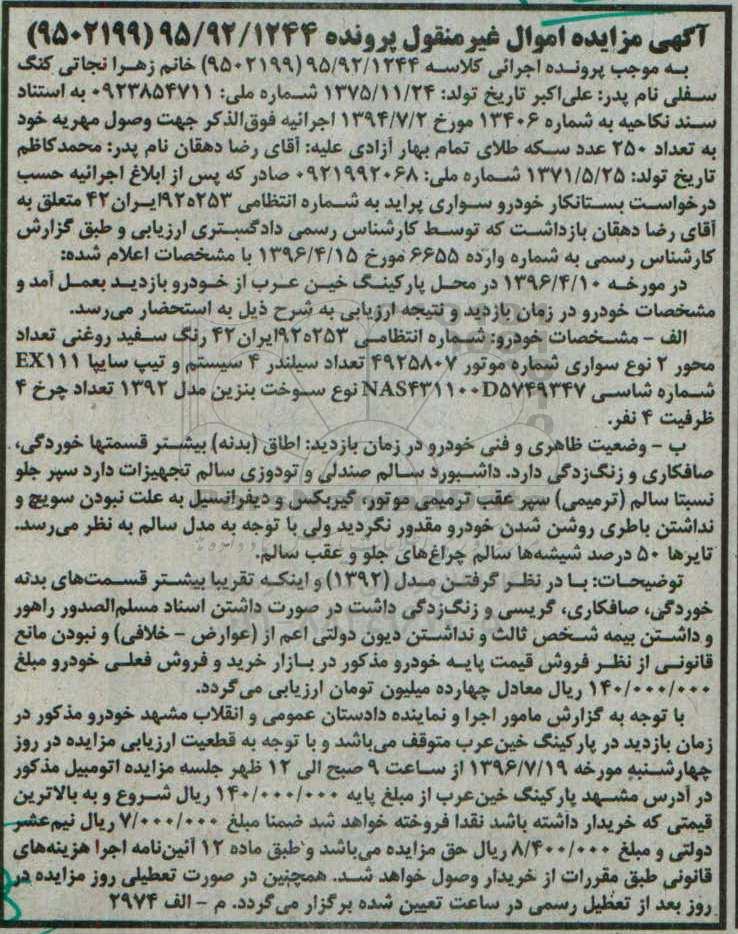 آگهی مزایده اموال غیرمنقول پرونده ۹۵/۹۲/۱۲۴۴ (۹۵۰۲۱۹۹)
به موجب پرونده اجرائی کلاسه ۹۵/۹۲/۱۲۴۴ (۹۵۰۲۱۹۹) خانم زهرا نجاتی کنگ
سفلی نام پدر: علی‌اکبر تاریخ تولد: ۱۳۷۵/۱۱/۲۴ شماره ملی: ۰۹۲۳۸۵۴۷۱۱ به استناد
سند نکاحیه به شماره ۱۳۴۰۶ مورخ ۱۳۹۴/۷/۲ اجرائیه فوق‌الذکر جهت وصول مهریه خود
به تعداد ۲۵۰ عدد سکه طلای تمام بهار آزادی علیه: آقای رضا دهقان نام پدر: محمدکاظم
تاریخ تولد: ۱۳۷۱/۵/۲۵ شماره ملی: ۰۹۲۱۹۹۲۰۶۸ صادر که پس از ابلاغ اجرائیه حسب
درخواست بستانکار خودرو سواری پراید به شماره انتظامی ۲۵۳ه۹۲ایران۴۲ متعلق به
آقای رضا دهقان بازداشت که توسط کارشناس رسمی دادگستری ارزیابی و طبق گزارش
کارشناس رسمی به شماره وارده ۶۶۵۵ مورخ ۱۳۹۶/۴/۱۵ با مشخصات اعلام شده:
در مورخه ۱۳۹۶/۴/۱۰ در محل پارکینگ خین عرب از خودرو بازدید بعمل آمد و
مشخصات خودرو در زمان بازدید و نتیجه ارزیابی به شرح ذیل به استحضار می‌رسد.
الف - مشخصات خودرو: شماره انتظامی ۲۵۳ه۹۲ایران۴۲ رنگ سفید روغنی تعداد
محور ۲ نوع سواری شماره موتور ۴۹۲۵۸۰۷ تعداد سیلندر ۴ سیستم و تیپ سایپا EX۱۱۱
شماره شاسی NAS۴۳۱۱۰۰D۵۷۴۹۳۴۷ نوع سوخت بنزین مدل ۱۳۹۲ تعداد چرخ ۴
ظرفیت ۴ نفر.
ب - وضعیت ظاهری و فنی خودرو در زمان بازدید: اطاق (بدنه) بیشتر قسمتها خوردگی،
صافکاری و زنگ‌زدگی دارد. داشبورد سالم صندلی و تودوزی سالم تجهیزات دارد سپر جلو
نسبتا سالم (ترمیمی) سپر عقب ترمیمی موتور، گیربکس و دیفرانسیل به علت نبودن سویچ و
نداشتن باطری روشن شدن خودرو مقدور نگردید ولی با توجه به مدل سالم به نظر می‌رسد.
تایرها ۵۰ درصد شیشه‌ها سالم چراغ‌های جلو و عقب سالم.
توضیحات: با در نظر گرفتن مدل (۱۳۹۲) و اینکه تقریبا بیشتر قسمت‌های بدنه
خوردگی، صافکاری، گریسی و زنگ‌زدگی داشت در صورت داشتن اسناد مسلم‌الصدور راهور
و داشتن بیمه شخص ثالث و نداشتن دیون دولتی اعم از (عوارض - خلافی) و نبودن مانع
قانونی از نظر فروش قیمت پایه خودرو مذکور در بازار خرید و فروش فعلی خودرو مبلغ
۱۴۰/۰۰۰/۰۰۰ ریال معادل چهارده میلیون تومان ارزیابی می‌گردد.
با توجه به گزارش مامور اجرا و نماینده دادستان عمومی و انقلاب مشهد خودرو مذکور در
زمان بازدید در پارکینگ خین‌عرب متوقف می‌باشد و با توجه به قطعیت ارزیابی مزایده در روز
چهارشنبه مورخه ۱۳۹۶/۷/۱۹ از ساعت ۹ صبح الی ۱۲ ظهر جلسه مزایده اتومبیل مذکور
در آدرس مشهد پارکینگ خین‌عرب از مبلغ پایه ۱۴۰/۰۰۰/۰۰۰ ریال شروع و به بالاترین
قیمتی که خریدار داشته باشد نقدا فروخته خواهد شد ضمنا مبلغ ۷/۰۰۰/۰۰۰ ریال نیم‌عشر
دولتی و مبلغ ۸/۴۰۰/۰۰۰ ریال حق مزایده می‌باشد و طبق ماده ۱۲ آئین‌نامه اجرا هزینه‌های
قانونی طبق مقررات از خریدار وصول خواهد شد. همچنین در صورت تعطیلی روز مزایده در
روز بعد از تعطیل رسمی در ساعت تعیین شده برگزار می‌گردد. م - الف ۲۹۷۴